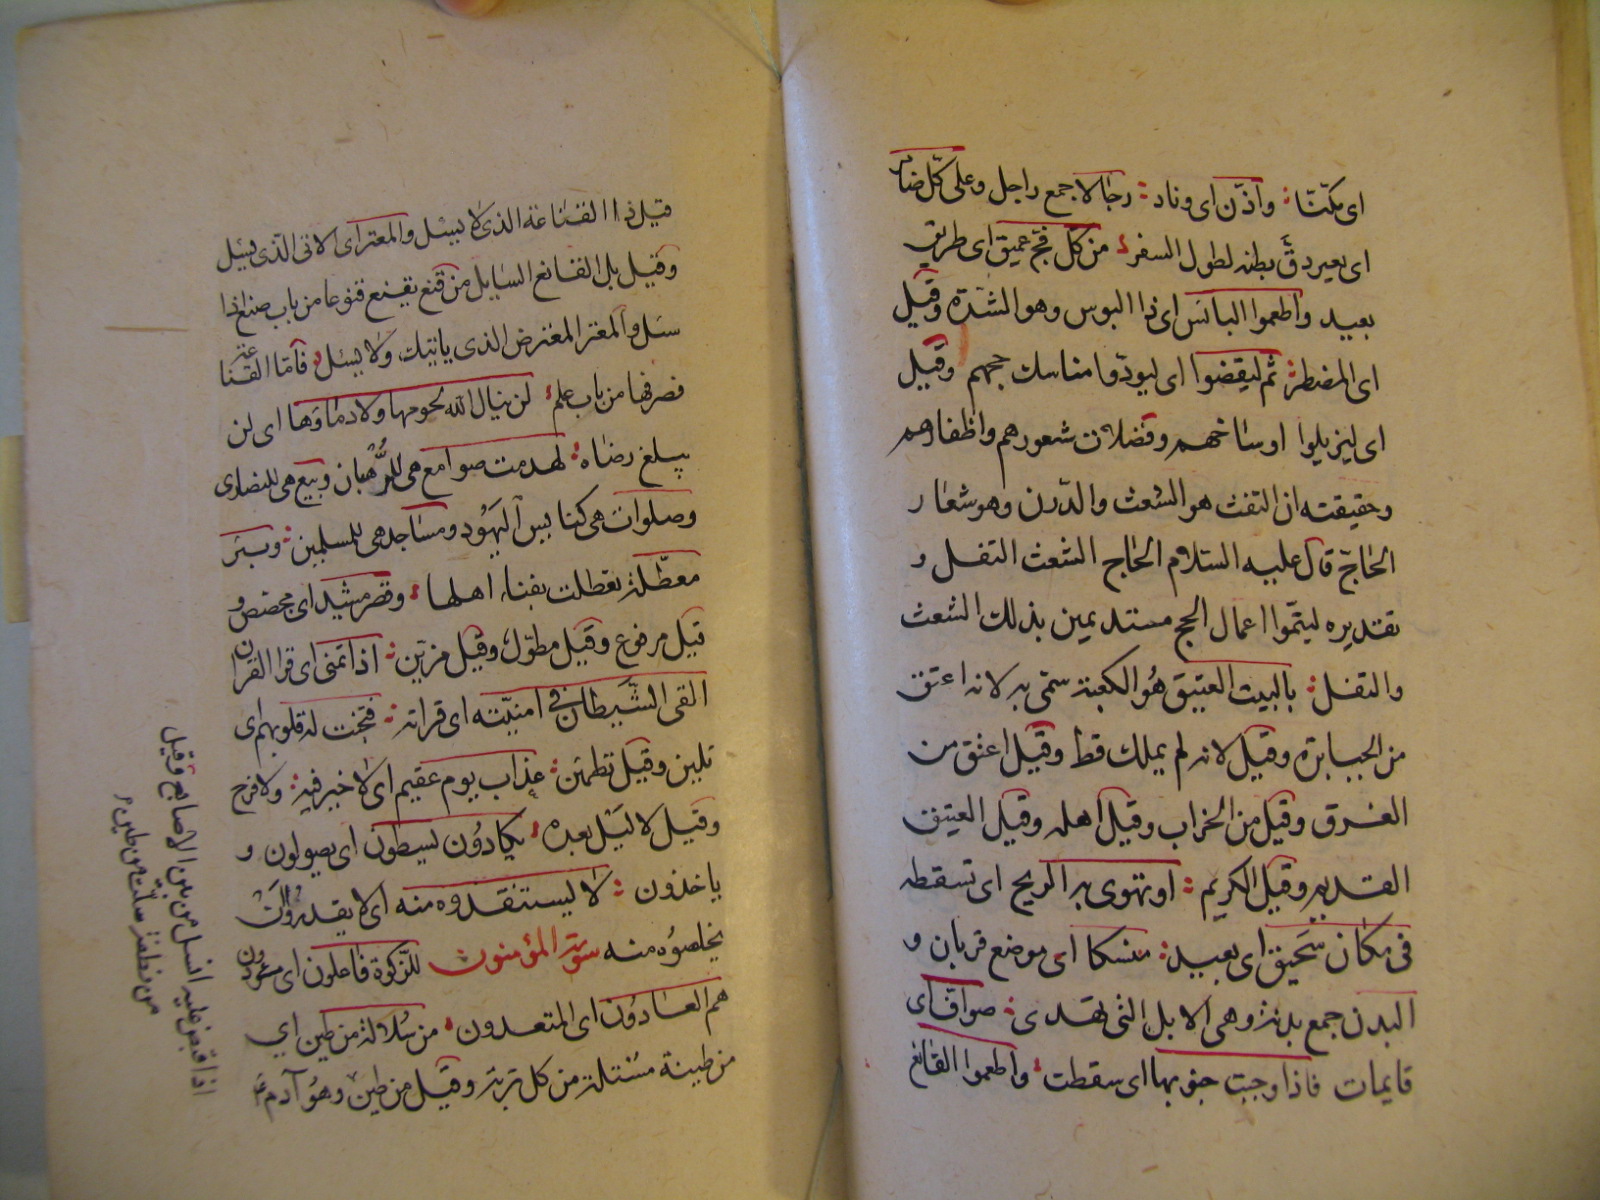 اى مكّتنا واذّن اى وناد رجالا جمع راجل وعلى كلّ ضامر
اى بعير دقّ بطنه لطول السفر من كلّ فجّ عميق اى طريق
بعيد واطعموا البائس اى ذا البوس وهو الشدّة وقيل
اى المضطر ثم ليقضوا اى ليودّوا مناسك حجهم وقيل
اى ليزيلوا اوساخهم وفضلات شعورهم واظفارهم
وحقيقته ان التفث هو الشعث والدّرن وهو شعار
الحاجّ قال عليه السلام الحاج الشعث التفل و
تقديره ليتمّوا اعمال الحج مستديمين بذلك الشعث
والتفل بالبيت العتيق هو الكعبة سمّى به لانه اعتق
من الجبابرة وقيل لانه لم يملك قط وقيل اعتق من
الغرق وقيل من الخراب وقيل اهله وقيل العتيق
القديم وقيل الكريم او تهوى به الريح اى تسقطه
فى مكان سحيق اى بعيد منسكا اى موضع قربان و
البدن جمع بدنة وهى الابل التى تهدى صوافّ اى
قايمات فاذا وجبت جنوبها اى سقطت واطعموا القانع
قيل ذا القناعة الذى لا يسئل والمعتر اى الاتى الذى يسئل
وقيل بل القانع السايل من قنع يقنع قنوعا من باب صنع اذا
سئل والمعتر المعترض الذى ياتيك ولا يسئل فامّا القناعة
فصرفها من باب علم لن ينال الله لحومها ولا دماوها اى لن
يبلغ رضاه لهدمت صوامع هى للرّهبان وبيع هى للنصارى
وصلوات هى كنايس اليهود ومساجد هى للمسلمين وبئر
معطّلة تعطلت بفناء اهلها وقصر مشيد اى مجصص و
قيل مرفوع وقيل مطوّل وقيل مزيّن اذا تمنى اى قرا القران
القى الشّيطان فى امنيّته اى قراته فتخبت له قلوبهم اى
تلين وقيل تطمئن عذاب يوم عقيم اى لا خير فيه ولا فرح
وقيل لا ليل بعده يكادون يسطون اى يصولون و
ياخذون لا يستنقذوه منه اى لا يقدرون ان
يخلصوه منه سورة المؤمنون للزّكوة فاعلون اى مؤدون
هم العادون اى المتعدون من سلالة من طين اي
من طينة مستلة من كل تربة وقيل من طين وهو آدم ع
اذا قبض عليه انسل من بين الاصابع وقيل
من نطفة سلت من طين